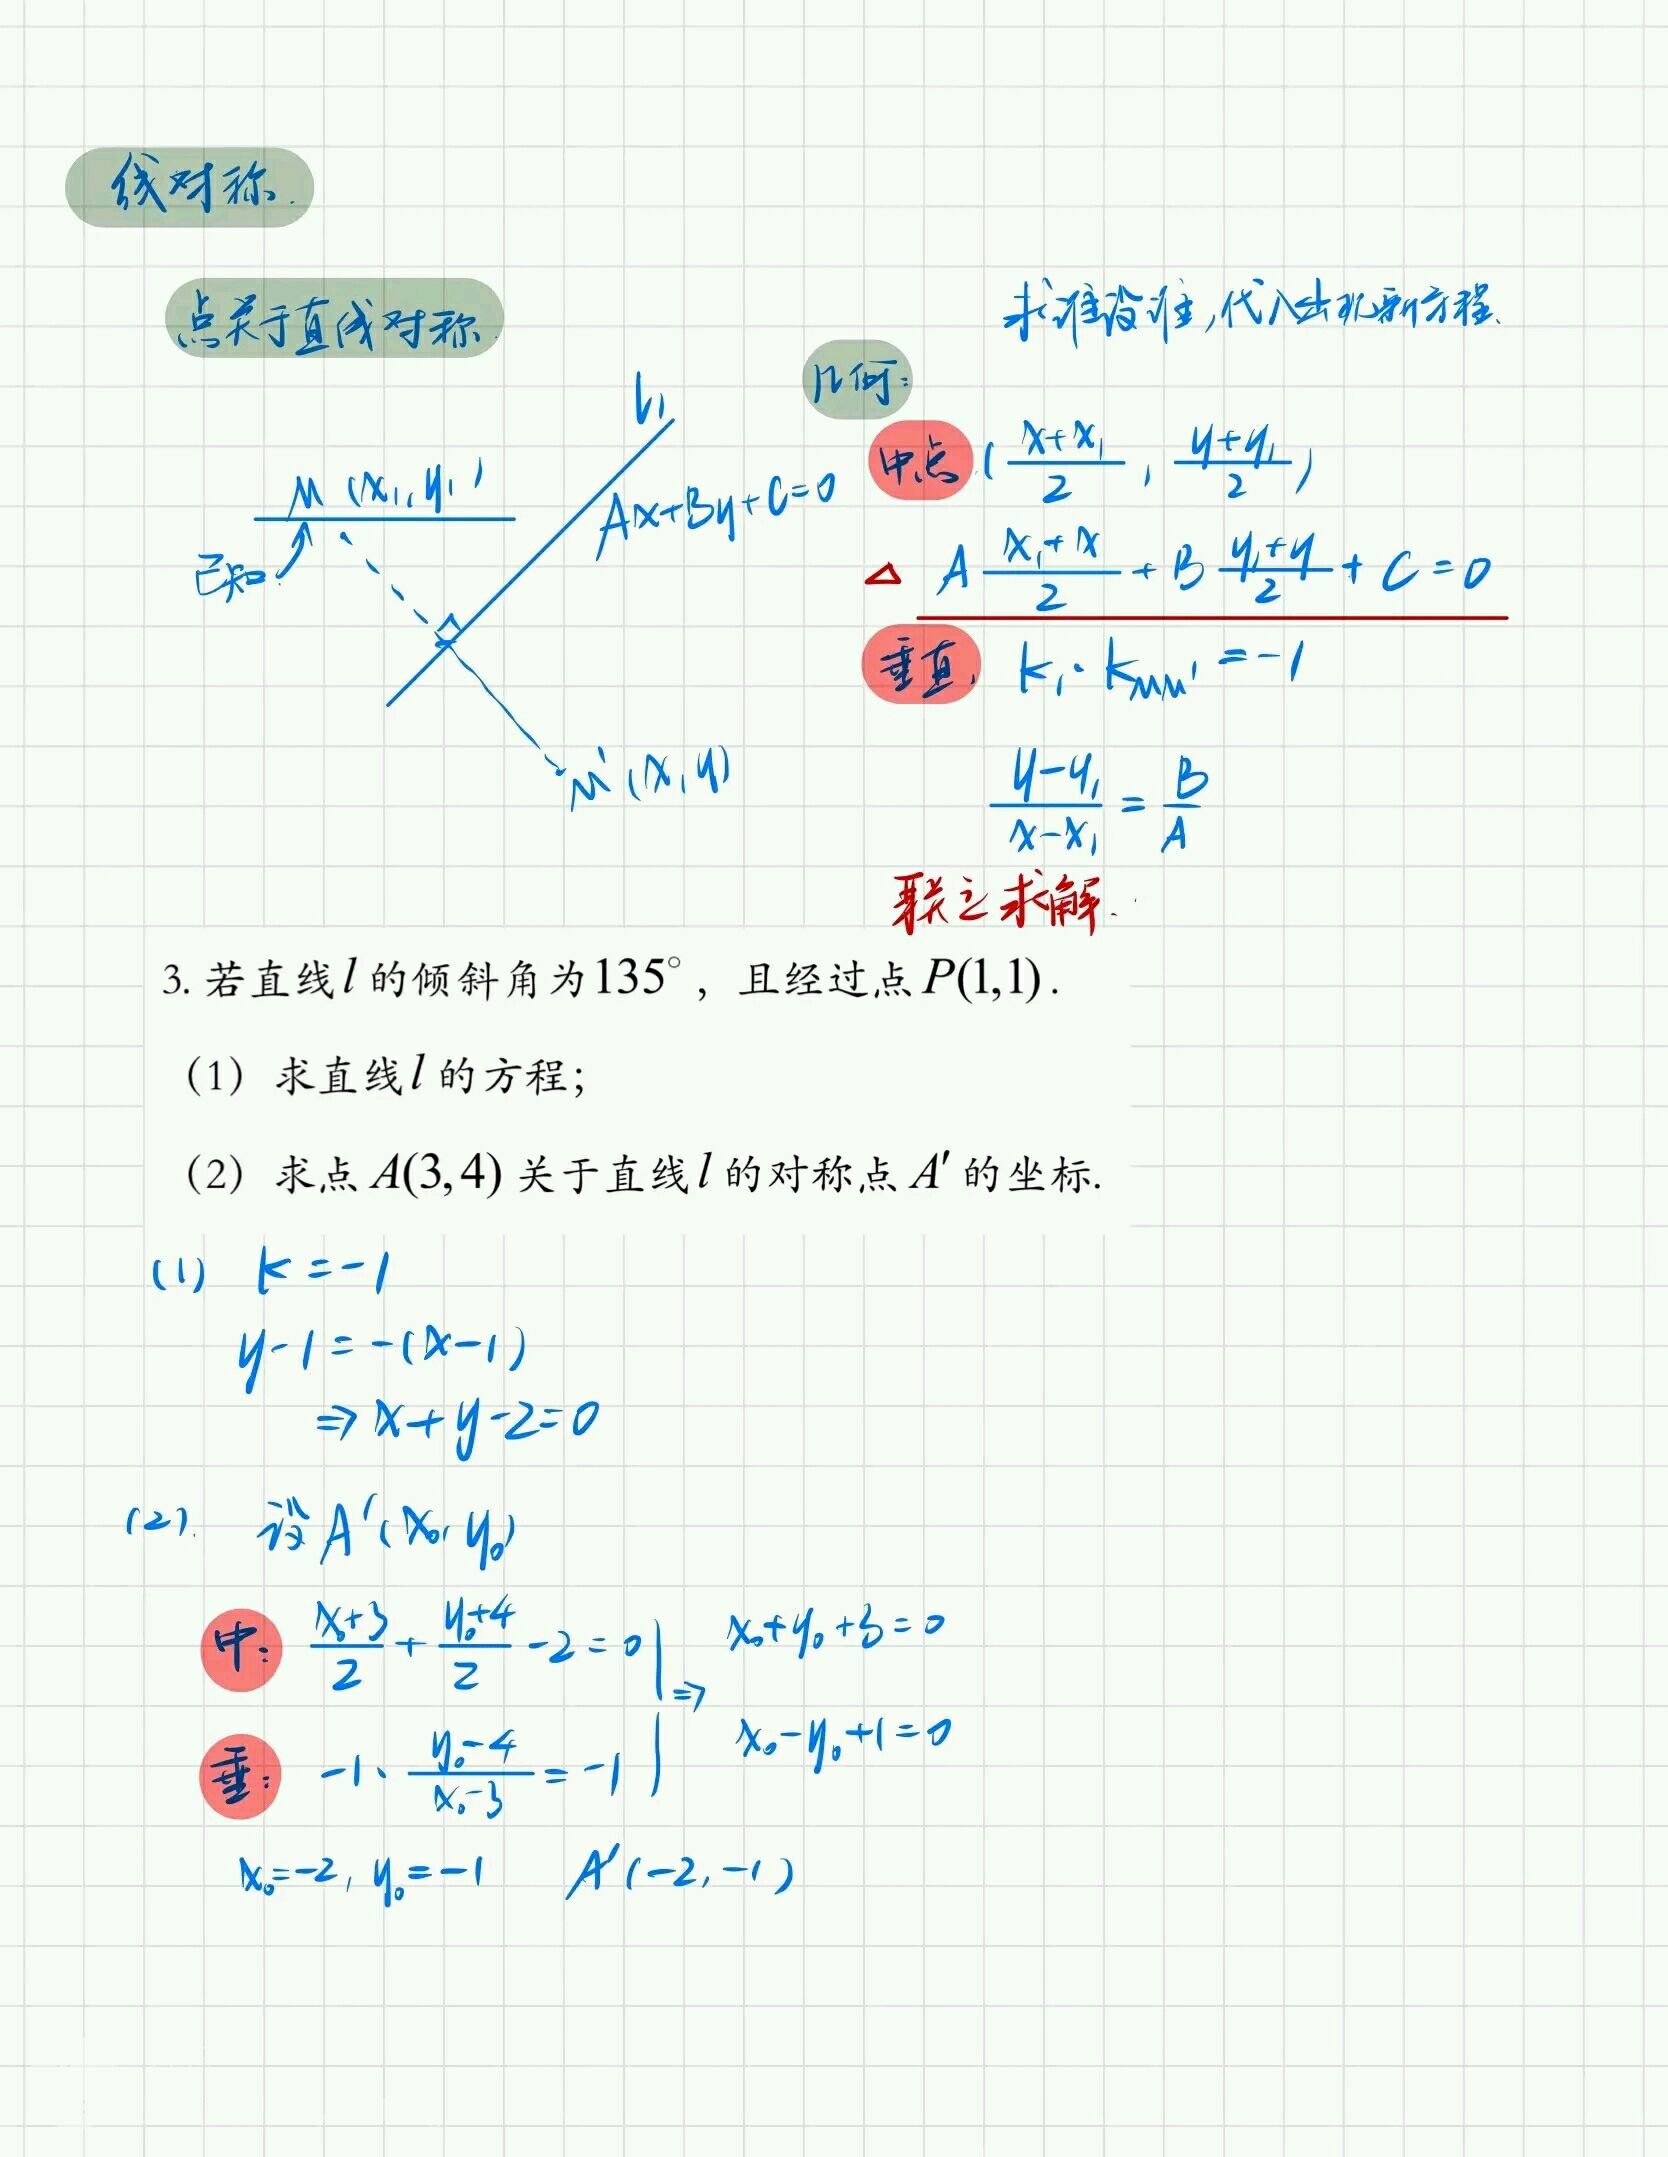 线对称.
点关于直线对称.
求谁设谁,代入出现新方程.
几何:
l₁
M(x₁,y₁)
Ax+By+C=0
已知
M'(x,y)
中点 ((x+x₁)/2, (y+y₁)/2)
△ A (x₁+x)/2 + B (y₁+y)/2 + C = 0
垂直, k₁·k_MM' = -1
(y-y₁)/(x-x₁) = B/A
联立求解.
3. 若直线 l 的倾斜角为 135°, 且经过点 P(1,1).
(1) 求直线 l 的方程;
(2) 求点 A(3,4) 关于直线 l 的对称点 A′ 的坐标.
(1) k=-1
y-1=-(x-1)
⇒ x+y-2=0
(2). 设 A'(x₀, y₀)
中: (x₀+3)/2 + (y₀+4)/2 -2=0 ⇒ x₀+y₀+3=0
垂: -1·(y₀-4)/(x₀-3) = -1 x₀-y₀+1=0
x₀=-2, y₀=-1 A'(-2,-1)